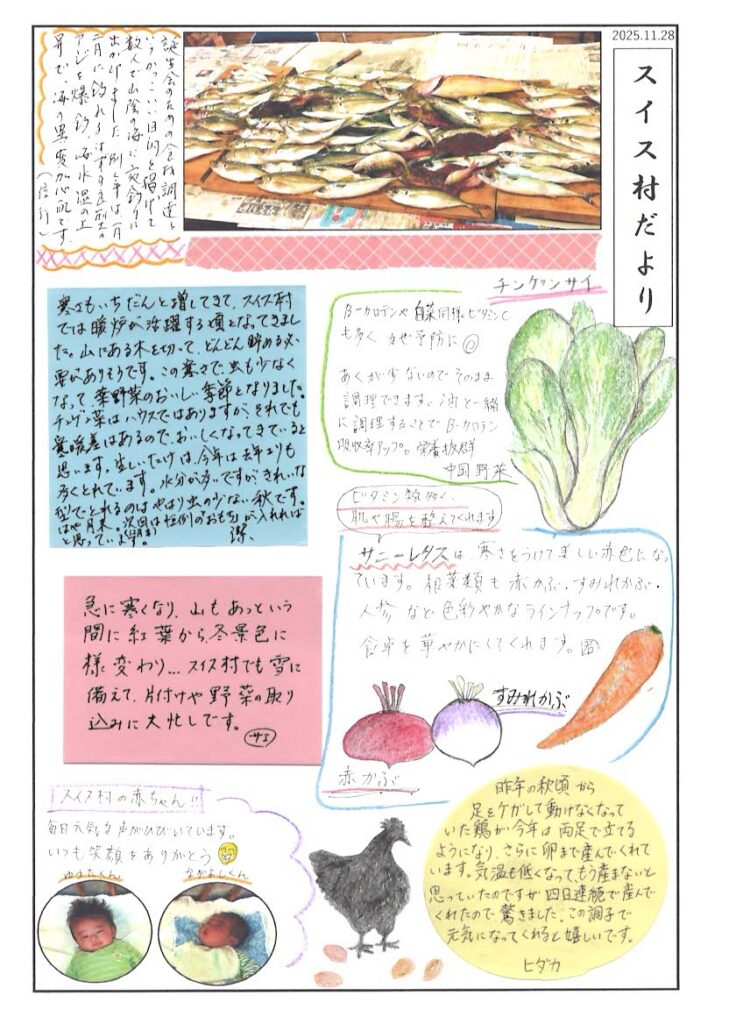 2025.11.28
スイス村だより
誕生会のための食材調達と
いうかっこいい目的を掲げて
数人で山陰の海に夜釣りに
出かけました。例年は一月
二月に釣れるはずの良型の
アジを爆釣。海水温の上
昇で、海の異変が心配です。
(信行)
チンゲンサイ
β-カロテンや白菜同様、ビタミンC
も多く かぜ予防に◎
あくが少ないのでそのまま
調理できます。油と一緒
に調理することでβ-カロテン
吸収率アップ。栄養抜群
中国野菜
寒さもいちだんと増してきて、スイス村
では暖炉が活躍する頃となってきまし
た。山にある木を切って、どんどん貯める必
要がありそうです。この寒さで、虫も少なく
なって葉野菜のおいしい季節となりました。
チンゲン菜はハウスではありますが、それでも
寒暖差はあるので、おいしくなってきていると
思います。生しいたけは、今年は去年よりも
多くとれています。水分が多いですが、きれいな
型でとれるのはやはり虫の少ない秋です。
はや月末。次回は恒例の"おもち"が入れれば
と思っています。
潔、
ビタミン数多く、
肌や腸を整えてくれます
サニーレタスは、寒さをうけて美しい赤色になっ
ています。根菜類も赤かぶ・すみれかぶ・
人参 など色彩やかなラインナップです。
食卓を華やかにしてくれます。
すみれかぶ
赤かぶ
急に寒くなり、山もあっという
間に紅葉から、冬景色に
様変わり…スイス村でも雪に
備えて、片付けや野菜の取り
込みに大忙しです。
サエ
スイス村の赤ちゃん!!
毎日元気な声がひびいています。
いつも笑顔をありがとう
ゆうたくん
ながよしくん
昨年の秋頃から
足をケガして動けなくなって
いた鶏が今年は両足で立てる
ようになり、さらに卵まで産んでくれて
います。気温も低くなってもう産まないと
思っていたのですが四日連続で産んで
くれたので驚きました。この調子で
元気になってくれると嬉しいです。
ヒダカ